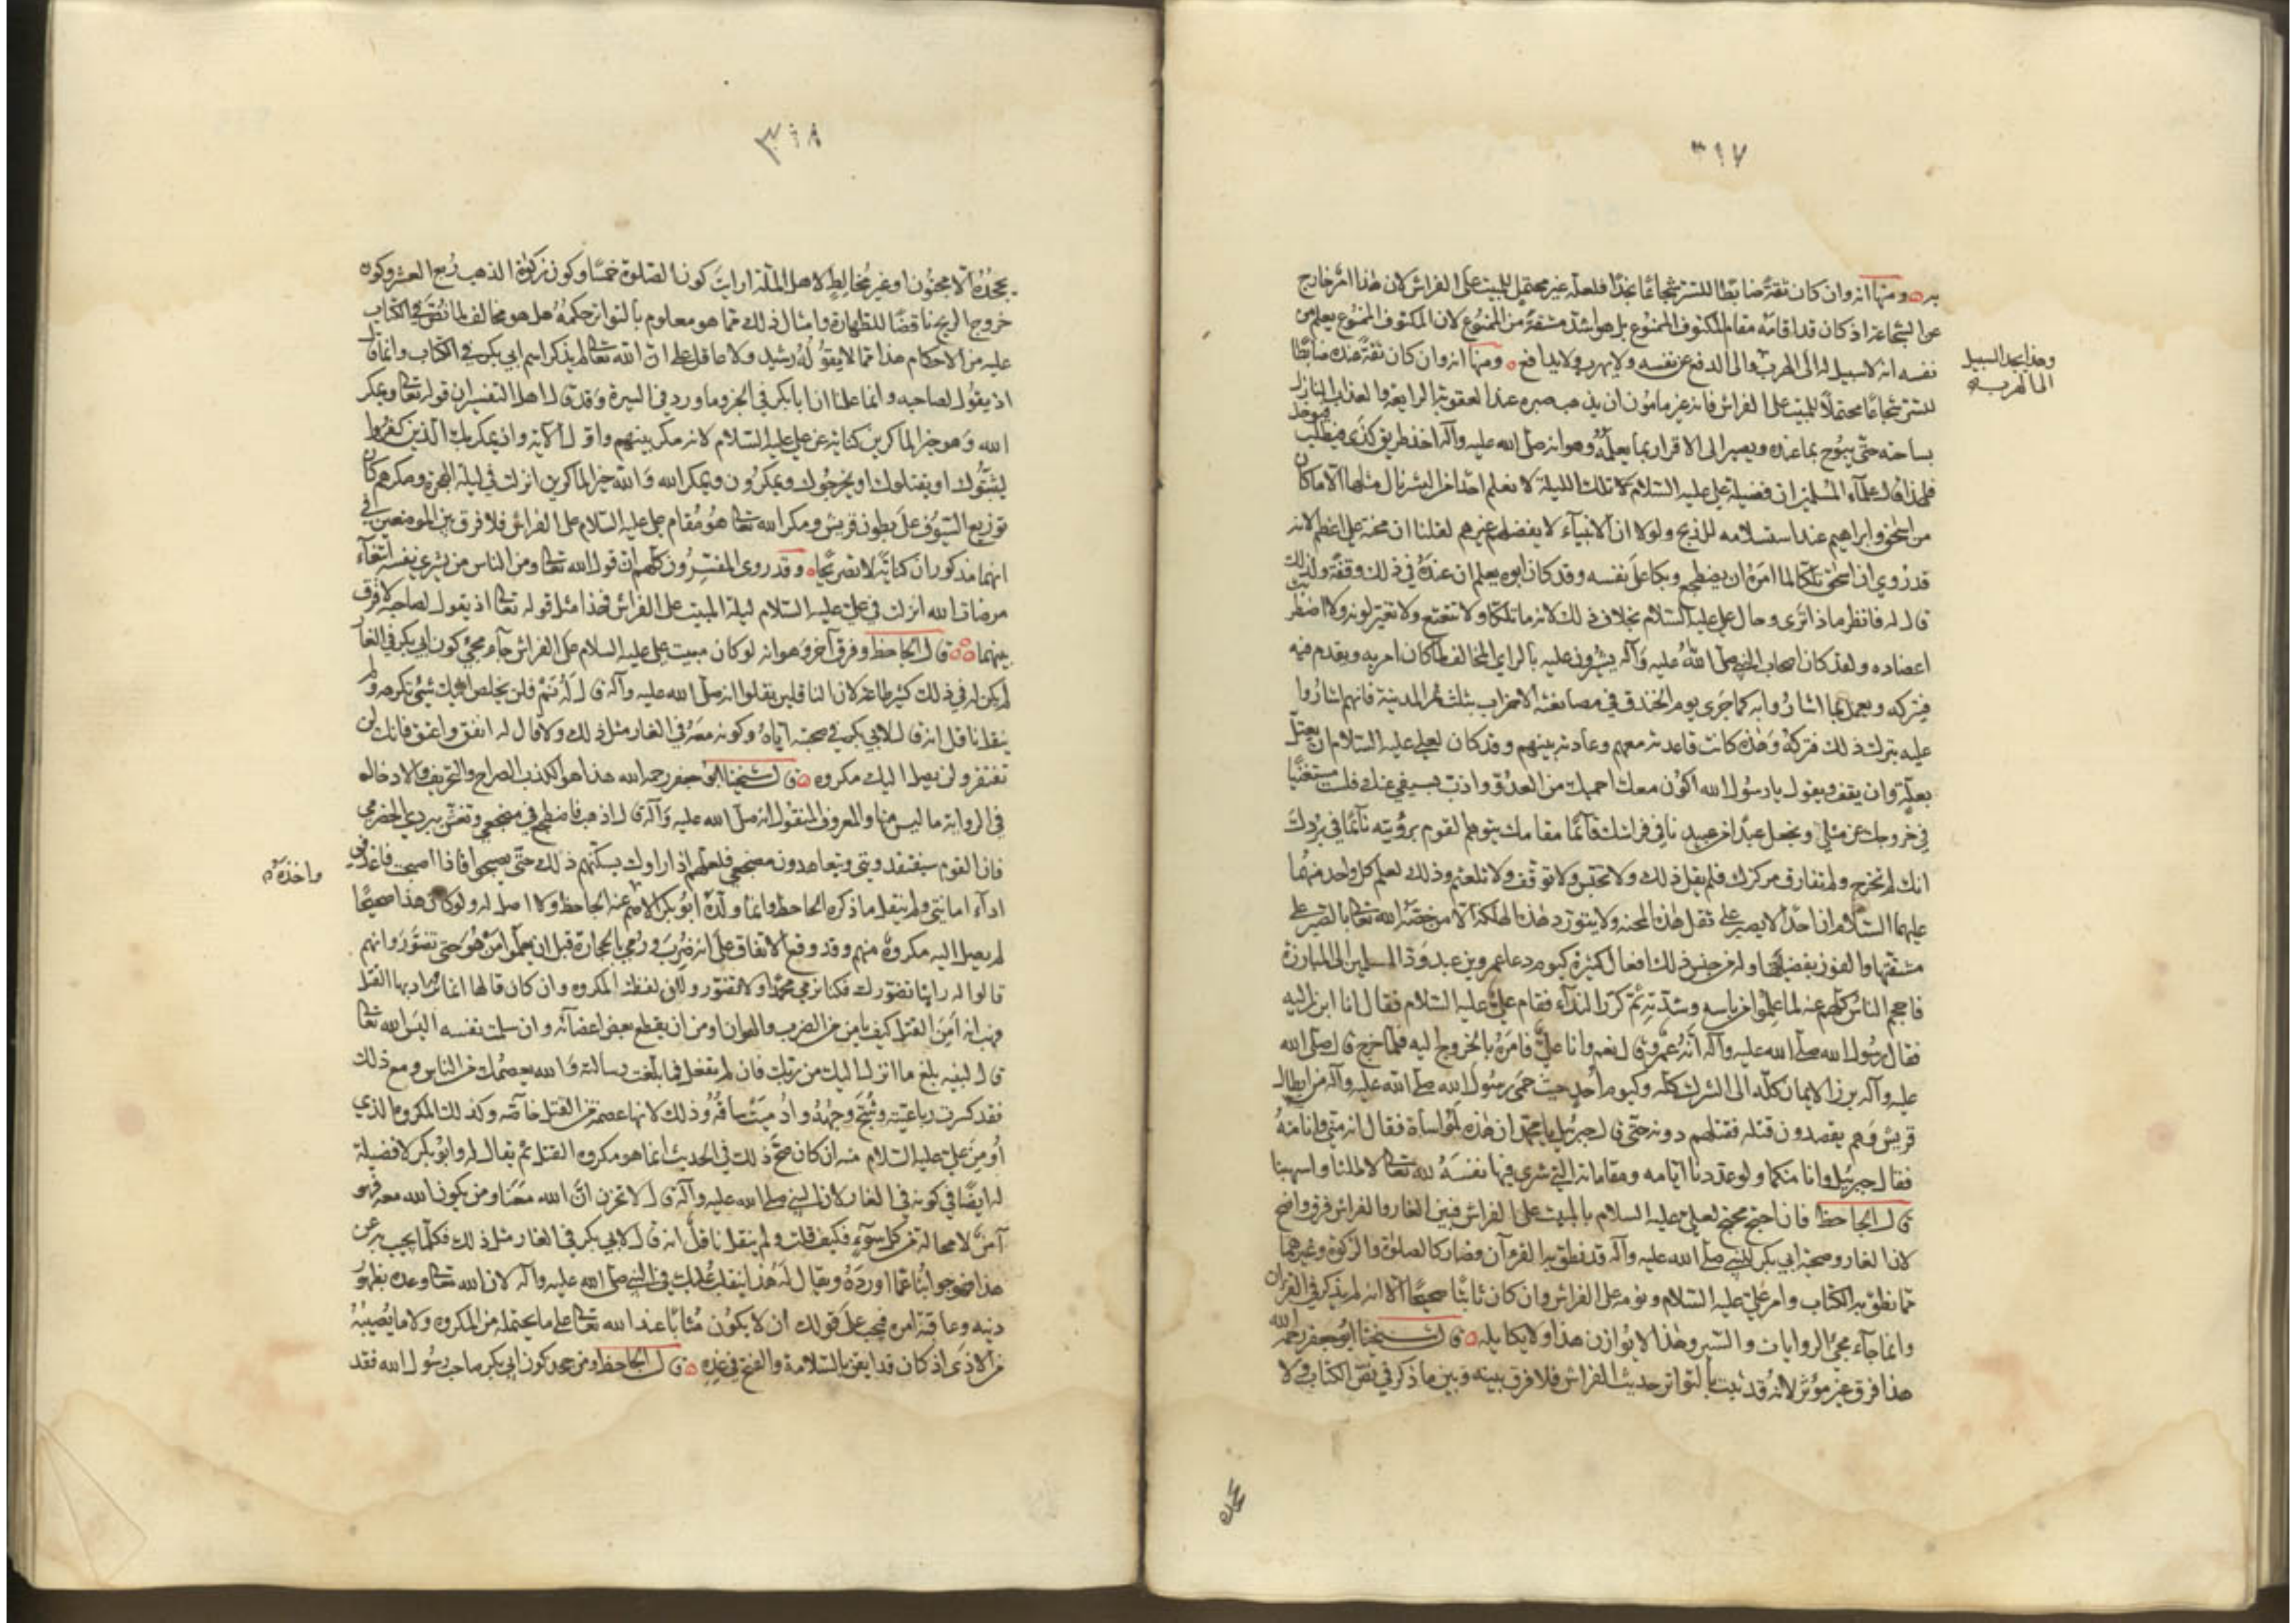 ٣١٧
به ومنها انه وان كان ثقة ضابطا للسر شجاعا نجدا فلعله غير محتمل للمبيت على الفراش لان هذا امر خارج
عن الشجاعة اذ كان قد اقامه مقام المكتوف الممنوع بل هو اشد مشقة من الممنوع لان المكتوف الممنوع يعلم من
نفسه انه لا سبيل له الى الهرب والى الدفع عن نفسه ولا يهرب ولا يدافع ومنها انه وان كان ثقة عنده ضابطا
وهذا يجد السبيل
الى الهرب
للسر شجاعا محتملا للمبيت على الفراش فانه غير مامون ان يذهب صبره عند العقوبة الواقعة والعذاب النازل
بساحته حتى يبوح بما عنده ويصير الى الاقرار بما يعلمه وهو انه صلى الله عليه وآله اخذ طريق كذى فيطلب فيوخذ
فلهذا قال علماء المسلمين ان فضيلة علي عليه السلام تلك الليلة لا نعلم احدا من البشر نال مثلها الا ما كان
من اسحق وابراهيم عند استسلامه للذبح ولولا ان الانبياء لا يفضلهم غيرهم لقلنا ان محنة علي اعظم لانه
قد روي ان اسحق تلكا لما امره ان يضطجع وبكا على نفسه وقد كان ابوه يعلم ان عنده في ذلك وقفة ولذلك
قال له فانظر ماذا ترى وحال علي عليه السلام بخلاف ذلك لانه ما تلكا ولا تتعتع ولا تغير لونه ولا اضطربت
اعضاده ولقد كان اصحاب النبي صلى الله عليه وآله يشيرون عليه بالراي المخالف لما كان امر به ويقدم فيه
فيتركه ويعمل بما اشاروا به كما جرى يوم الخندق في مصانعة الاحزاب بثلث تمر المدينة فانهم اشاروا
عليه بترك ذلك فتركه وهذه كانت قاعدته معهم وعادته بينهم وقد كان لعلي عليه السلام ان يعتل
بعلة وان يقف ويقول يا رسول الله اكون معك احميك من العدو واذب بسيفي عنك فلست مستغنيا
في خروجك عن مثلي ونجعل عبدا من عبيدنا في فراشك قائما مقامك يتوهم القوم برؤيته نائما في بردك
انك لم تخرج ولم تفارق مركزك فلم يقل ذلك ولا تحبس ولا توقف ولا تلعثم وذلك لعلم كل واحد منهما
عليهما السلام ان احدا لا يصبر على ثقل هذه المحنة ولا يتورد هذه الهلكة الا من خصه الله تعالى بالصبر على
مشقتها والفوز بفضيلتها وله من جنس ذلك افعال كثيرة كيوم دعا عمرو بن عبد ود المسلمين الى المبارزة
فاحجم الناس كلهم عنه لما علموا من باسه وشدته ثم كرر النداء فقام علي عليه السلام فقال انا ابرز اليه
فقال رسول الله صلى الله عليه وآله انه عمرو قال نعم وانا علي فامره بالخروج اليه فلما خرج قال صلى الله
عليه وآله برز الايمان كله الى الشرك كله وكيوم احد حيث حمى رسول الله صلى الله عليه وآله من ابطال
قريش وهم يقصدون قتله فقتلهم دونه حتى قال جبرئيل يا محمد ان هذه لهي المواساة فقال انه مني وانا منه
فقال جبرئيل وانا منكما ولو عددنا ايامه ومقاماته التي شرى فيها نفسه لله تعالى لاطلنا واسهبنا
قال الجاحظ فان احتج محتج لعلي عليه السلام بالمبيت على الفراش فبين الغار والفراش فرق واضح
لان الغار وصحبة ابي بكر للنبي صلى الله عليه وآله قد نطق به القرآن وصار كالصلوة والزكوة وغيرهما
مما نطق به الكتاب وامر علي عليه السلام ونومه على الفراش وان كان ثابتا صحيحا الا انه لم يذكر في القرآن
وانما جاء مجئ الروايات والسير وهذا لا يوازن هذا ولا يكايله قال شيخنا ابو جعفر رحمه الله
هذا فرق غير مؤثر لانه قد ثبت بالتواتر حديث الفراش فلا فرق بينه وبين ما ذكر في نص الكتاب ولا
٣١٨
يجحده الا مجنون او غير مخالط لاهل الملة ارايت كون الصلوة خمسا وكون زكوة الذهب ربع العشر وكون
خروج الريح ناقضا للطهارة وامثال ذلك مما هو معلوم بالتواتر حكمه هل هو مخالف لما نص في الكتاب
عليه من الاحكام هذا مما لا يقوله رشيد ولا عاقل على ان الله تعالى لم يذكر اسم ابي بكر في الكتاب وانما قال
اذ يقول لصاحبه وانما علمنا انه ابا بكر في الخبر وما ورد في السيرة وقد قال اهل التفسير ان قوله تعالى ويمكر
الله وهو خير الماكرين كناية عن علي عليه السلام لانه مكر بينهم واول الآية واذ يمكر بك الذين كفروا
ليثبتوك او يقتلوك او يخرجوك ويمكرون ويمكر الله والله خير الماكرين انزلت في ليلة الهجرة ومكرهم كان
توزيع السيوف على بطون قريش ومكر الله تعالى هو مقام علي عليه السلام على الفراش فلا فرق بين الموضعين في
انهما مذكوران كناية لا تصريحا وقد روى المفسرون كلهم ان قول الله تعالى ومن الناس من يشري نفسه ابتغاء
مرضات الله انزلت في علي عليه السلام ليلة المبيت على الفراش فهذا مثل قوله تعالى اذ يقول لصاحبه لا فرق
بينهما قال الجاحظ وفرق آخر وهو انه لو كان مبيت علي عليه السلام على الفراش جاء مجئ كون ابي بكر في الغار
لم يكن له في ذلك كثير طاعة لان الناقلين نقلوا انه صلى الله عليه وآله قال له نم فلن يخلص اليك شئ تكرهه ولم
ينقل ناقل انه قال لابي بكر في صحبته اياه وكونه معه في الغار مثل ذلك ولا قال له انفق واعتق فانك لن
تفتقر ولن يصل اليك مكروه قال شيخنا ابو جعفر رحمه الله هذا هو الكذب الصراح والتحريف والادخال
في الرواية ما ليس منها والمعروف المنقول انه صلى الله عليه وآله قال اذهب فاضطجع في مضجعي وتغش ببردي الحضرمي
فان القوم سيفقدوني ويتعاهدون مضجعي فلعلهم اذا راوك يسكنهم ذلك حتى يصبحوا فاذا اصبحت فاغد في
اداء امانتي ولم ينقل ما ذكره الجاحظ وانما ولده ابو بكر الاصم عنه الجاحظ ولا اصل له ولو كان هذا صحيحا
واخذه
لم يصل اليه مكروه منهم وقد وقع الاتفاق على انه ضرب ورمي بالحجارة قبل ان يعلموا من هو حتى تضور وانهم
قالوا له راينا تضورك فكنا نرمي محمدا ولا يتضور ولان لفظة المكروه وان كان قالها انما يراد بها القتل
فهب انه امن القتل كيف يامن من الضرب والهوان ومن ان يقطع بعض اعضائه وان سلمت نفسه اليس الله تعالى
قال لنبيه بلغ ما انزل اليك من ربك فان لم تفعل فما بلغت رسالته والله يعصمك من الناس ومع ذلك
فقد كسرت رباعيته وشج وجهه وادميت ساقه وذلك لانها عصمة من القتل خاصة وكذلك المكروه الذي
اومن علي عليه السلام منه ان كان صح ذلك في الحديث انما هو مكروه القتل ثم يقال له وابو بكر لا فضيلة
له ايضا في كونه في الغار لان النبي صلى الله عليه وآله قال لا تحزن ان الله معنا ومن يكون الله معه فهو
آمن لا محالة من كل سوء فكيف قلت ولم ينقل ناقل انه قال لابي بكر في الغار مثل ذلك فكلما يجيب به عن
هذا فهو جوابنا عما اورده ويقال له هذا ينقلب عليك في النبي صلى الله عليه وآله لان الله تعالى وعده بظهور
دينه وعاقبة امره فيجب على قولك ان لا يكون مثابا عند الله تعالى على ما يحتمله من المكروه ولا ما يصيبه
من الاذى اذ كان قد ايقن بالسلامة والفتح في غده قال الجاحظ ومن جحد كون ابي بكر صاحب رسول الله فقد